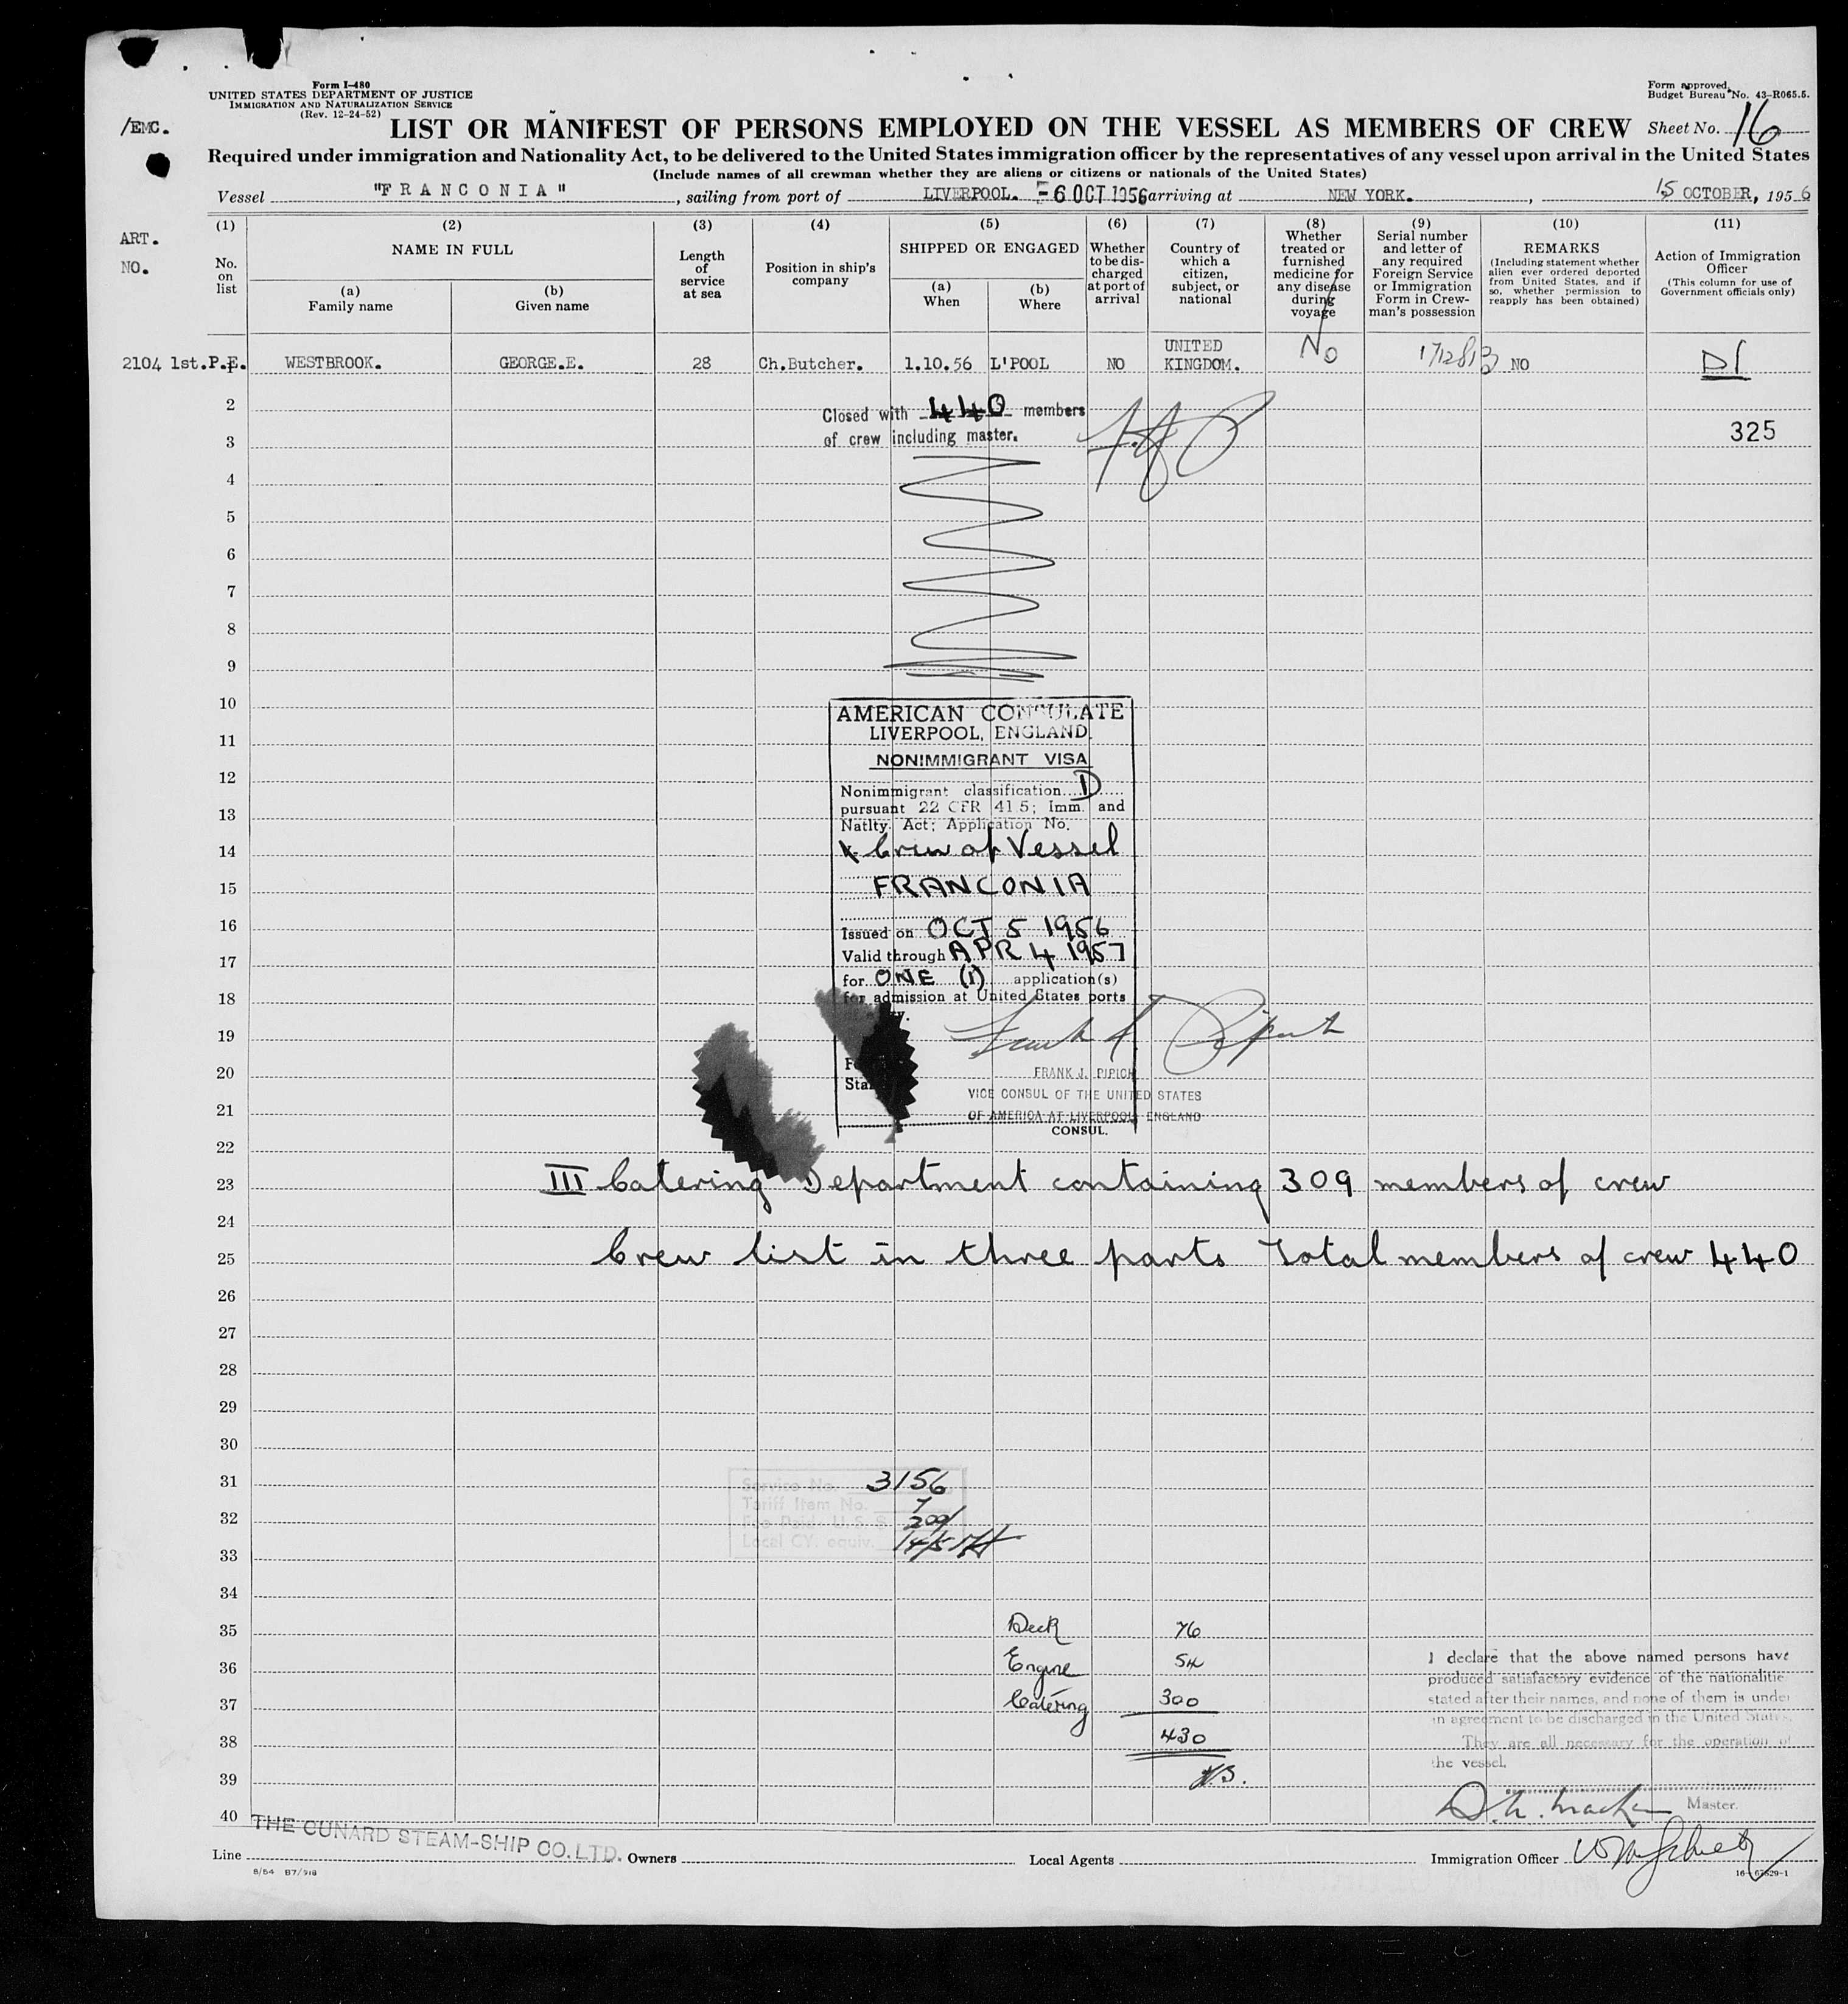 Form I-480
UNITED STATES DEPARTMENT OF JUSTICE
IMMIGRATION AND NATURALIZATION SERVICE
(Rev. 12-24-52)
Form approved.
Budget Bureau No. 43-R065.5.
/EMC.
LIST OR MANIFEST OF PERSONS EMPLOYED ON THE VESSEL AS MEMBERS OF CREW
Sheet No. 16
Required under immigration and Nationality Act, to be delivered to the United States immigration officer by the representatives of any vessel upon arrival in the United States
(Include names of all crewman whether they are aliens or citizens or nationals of the United States)
Vessel "FRANCONIA", sailing from port of LIVERPOOL. -6 OCT 1956 arriving at NEW YORK., 15 OCTOBER, 1956
ART.
NO.
(1)
No.
on
list
(2)
NAME IN FULL
(a)
Family name
(b)
Given name
(3)
Length
of
service
at sea
(4)
Position in ship's
company
(5)
SHIPPED OR ENGAGED
(a)
When
(b)
Where
(6)
Whether
to be dis-
charged
at port of
arrival
(7)
Country of
which a
citizen,
subject, or
national
(8)
Whether
treated or
furnished
medicine for
any disease
during
voyage
(9)
Serial number
and letter of
any required
Foreign Service
or Immigration
Form in Crew-
man's possession
(10)
REMARKS
(Including statement whether
alien ever ordered deported
from United States, and if
so, whether permission to
reapply has been obtained)
(11)
Action of Immigration
Officer
(This column for use of
Government officials only)
2104 1st.P.E. WESTBROOK. GEORGE.E. 28 Ch.Butcher. 1.10.56 L'POOL NO UNITED KINGDOM. No NO D1
2
Closed with 440 members
3
of crew including master.
325
4
5
6
7
8
9
10
AMERICAN CONSULATE
11
LIVERPOOL, ENGLAND
NONIMMIGRANT VISA
12
Nonimmigrant classification D
13
pursuant 22 CFR 41.5; Imm. and
Natlty. Act; Application No.
14
Crew of Vessel
15
FRANCONIA
16
Issued on OCT 5 1956
17
Valid through APR 4 1957
for ONE (1) application(s)
18
for admission at United States ports
19
20
FRANK J. PIPICH
VICE CONSUL OF THE UNITED STATES
21
OF AMERICA AT LIVERPOOL, ENGLAND
CONSUL.
22
23
III Catering Department containing 309 members of crew
24
25
Crew list in three parts Total members of crew 440
26
27
28
29
30
31
Service No. 3156
Tariff Item No. 7
32
Fee Paid U.S.$
Local CY. equiv.
33
34
35
Deck 76
36
Engine 54
37
Catering 300
38
430
39
40
I declare that the above named persons have
produced satisfactory evidence of the nationalitie
stated after their names, and none of them is under
an agreement to be discharged in the United States.
They are all necessary for the operation of
the vessel.
Master.
Line THE CUNARD STEAM-SHIP CO. LTD. Owners Local Agents Immigration Officer
8/54 B7/918